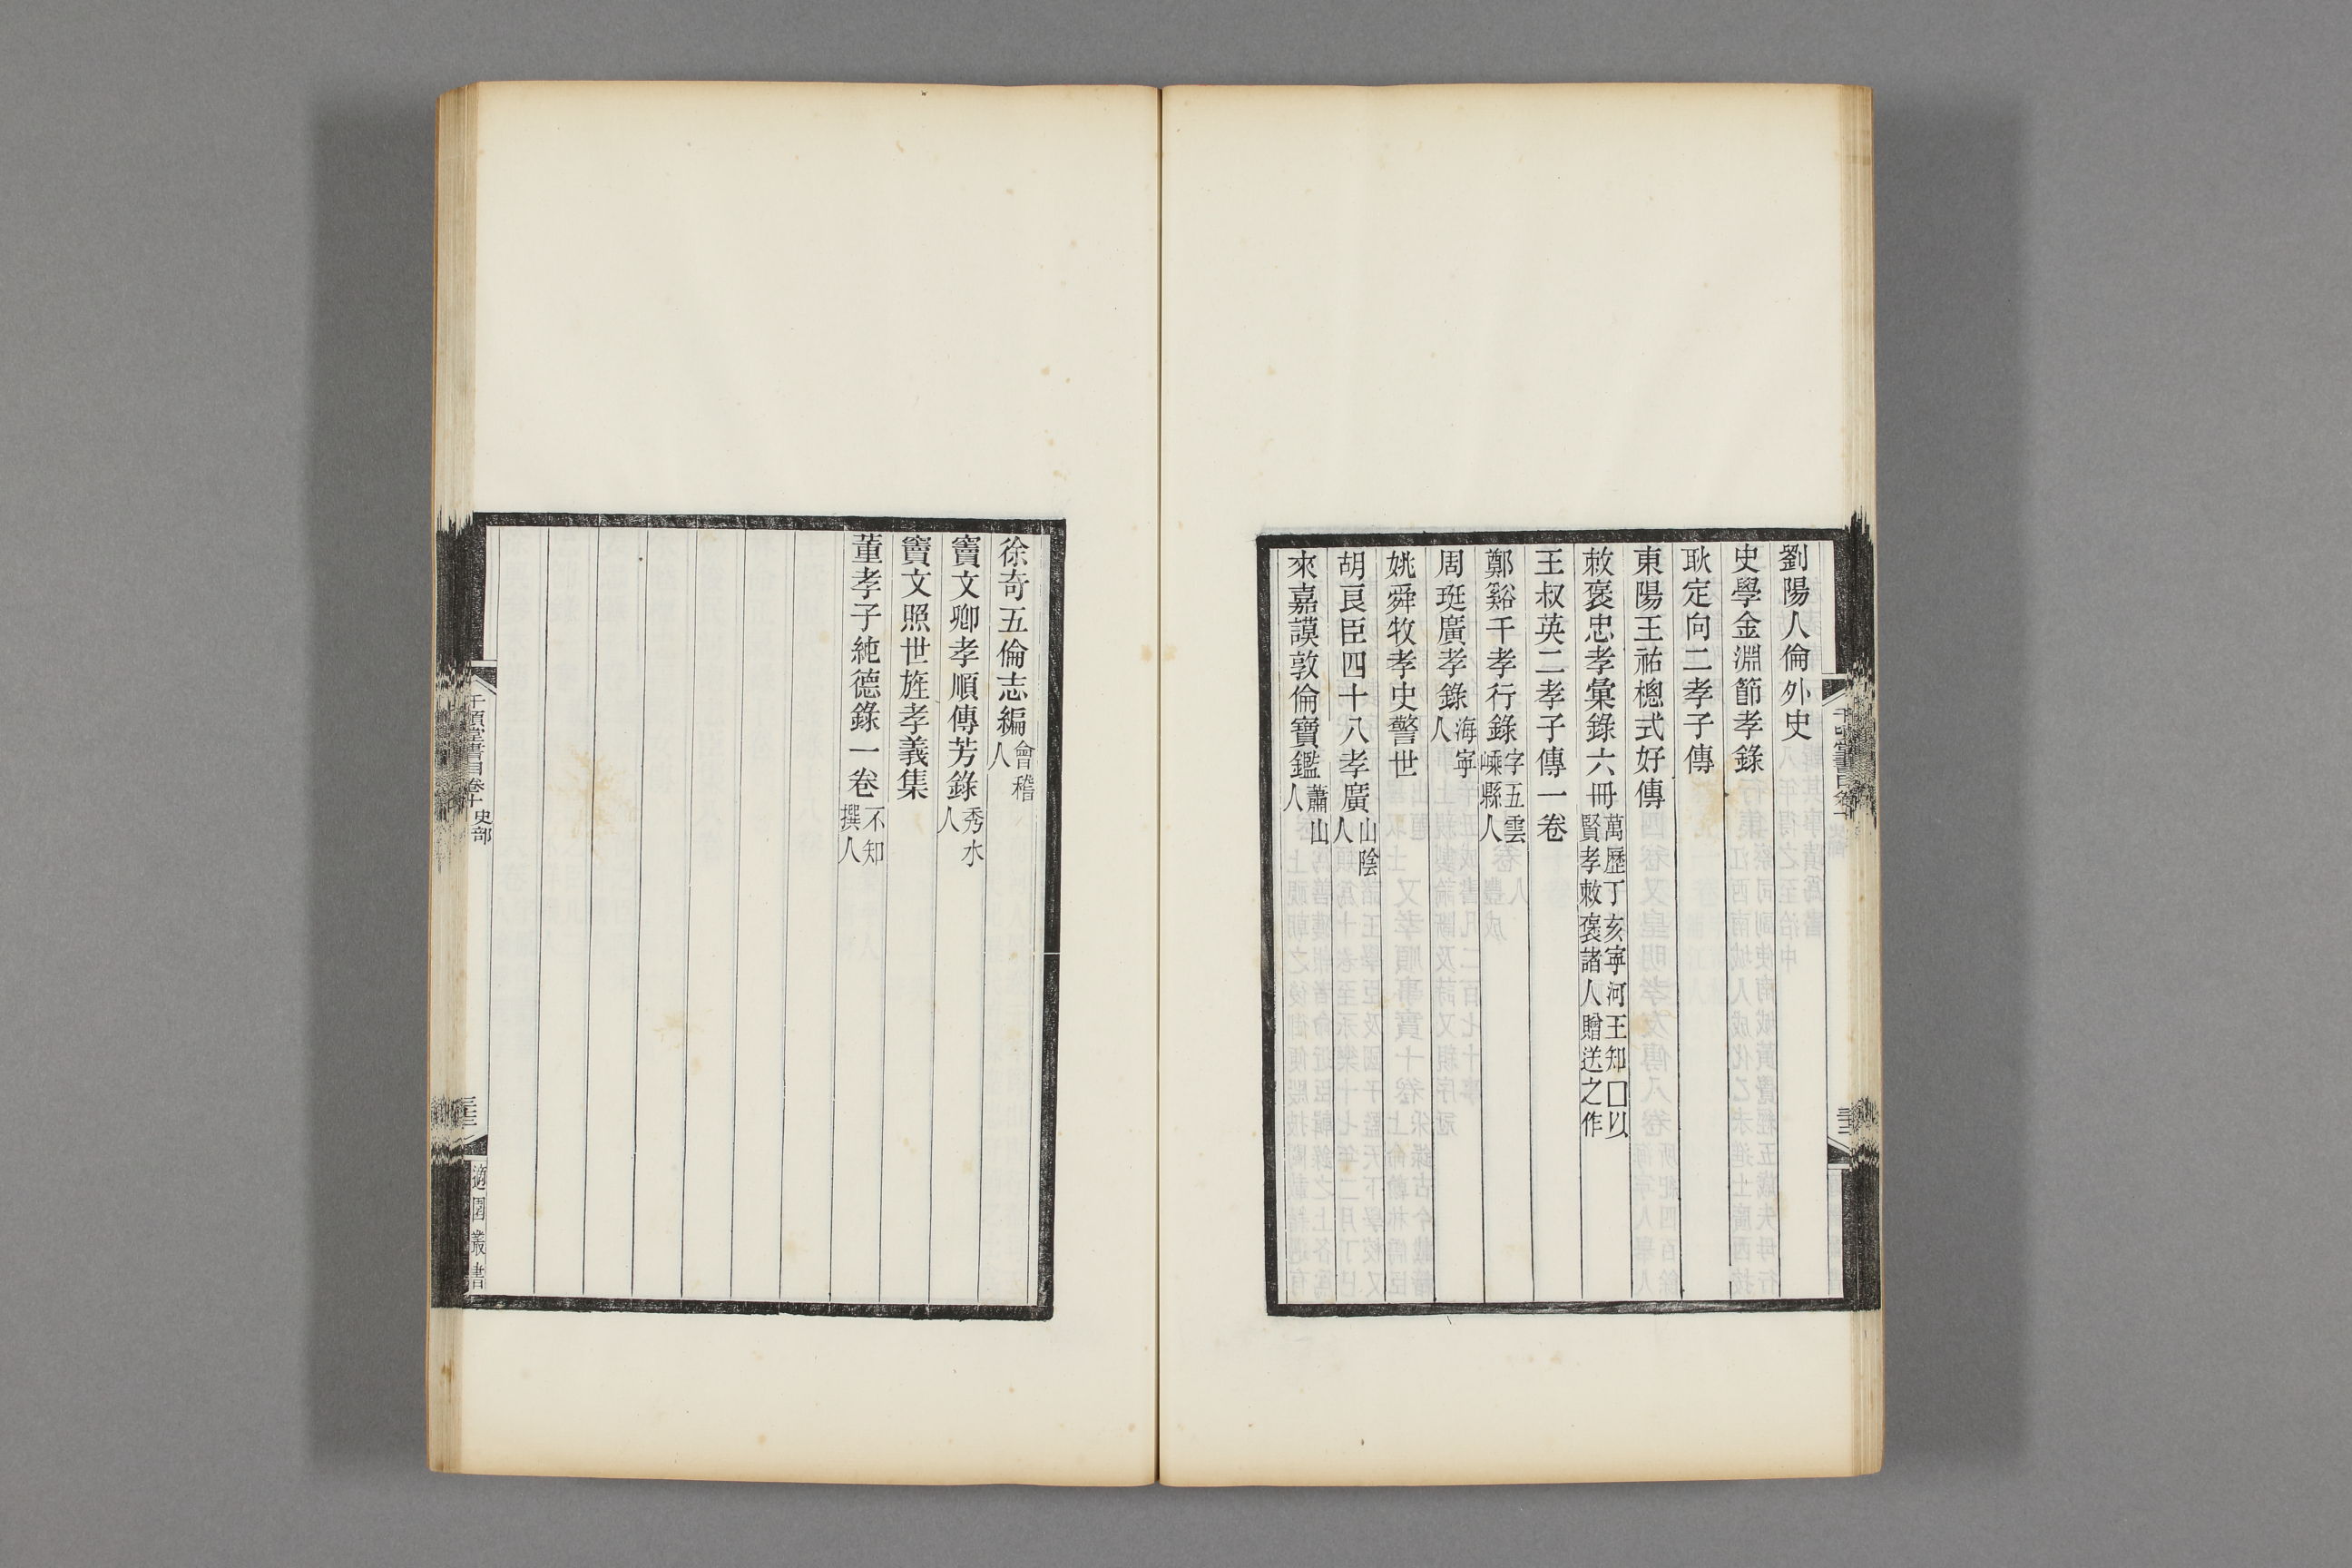 劉陽人倫外史
史學金淵節孝錄
耿定向二孝子傳
東陽王祐樬式好傳
敕褒忠孝彙錄六冊萬歷丁亥寧河王知□以賢孝敕褒諸人贈送之作
王叔英二孝子傳一卷
鄭谿千孝行錄字五雲嵊縣人
周珽廣孝錄海寧人
姚舜牧孝史警世
胡良臣四十八孝廣山陰人
來嘉謨敦倫寶鑑蕭山人
徐奇五倫志編會稽人
竇文卿孝順傳芳錄秀水人
竇文照世旌孝義集
董孝子純德錄一卷不知撰人
千頃堂書目卷十 史部
三十二
適園叢書